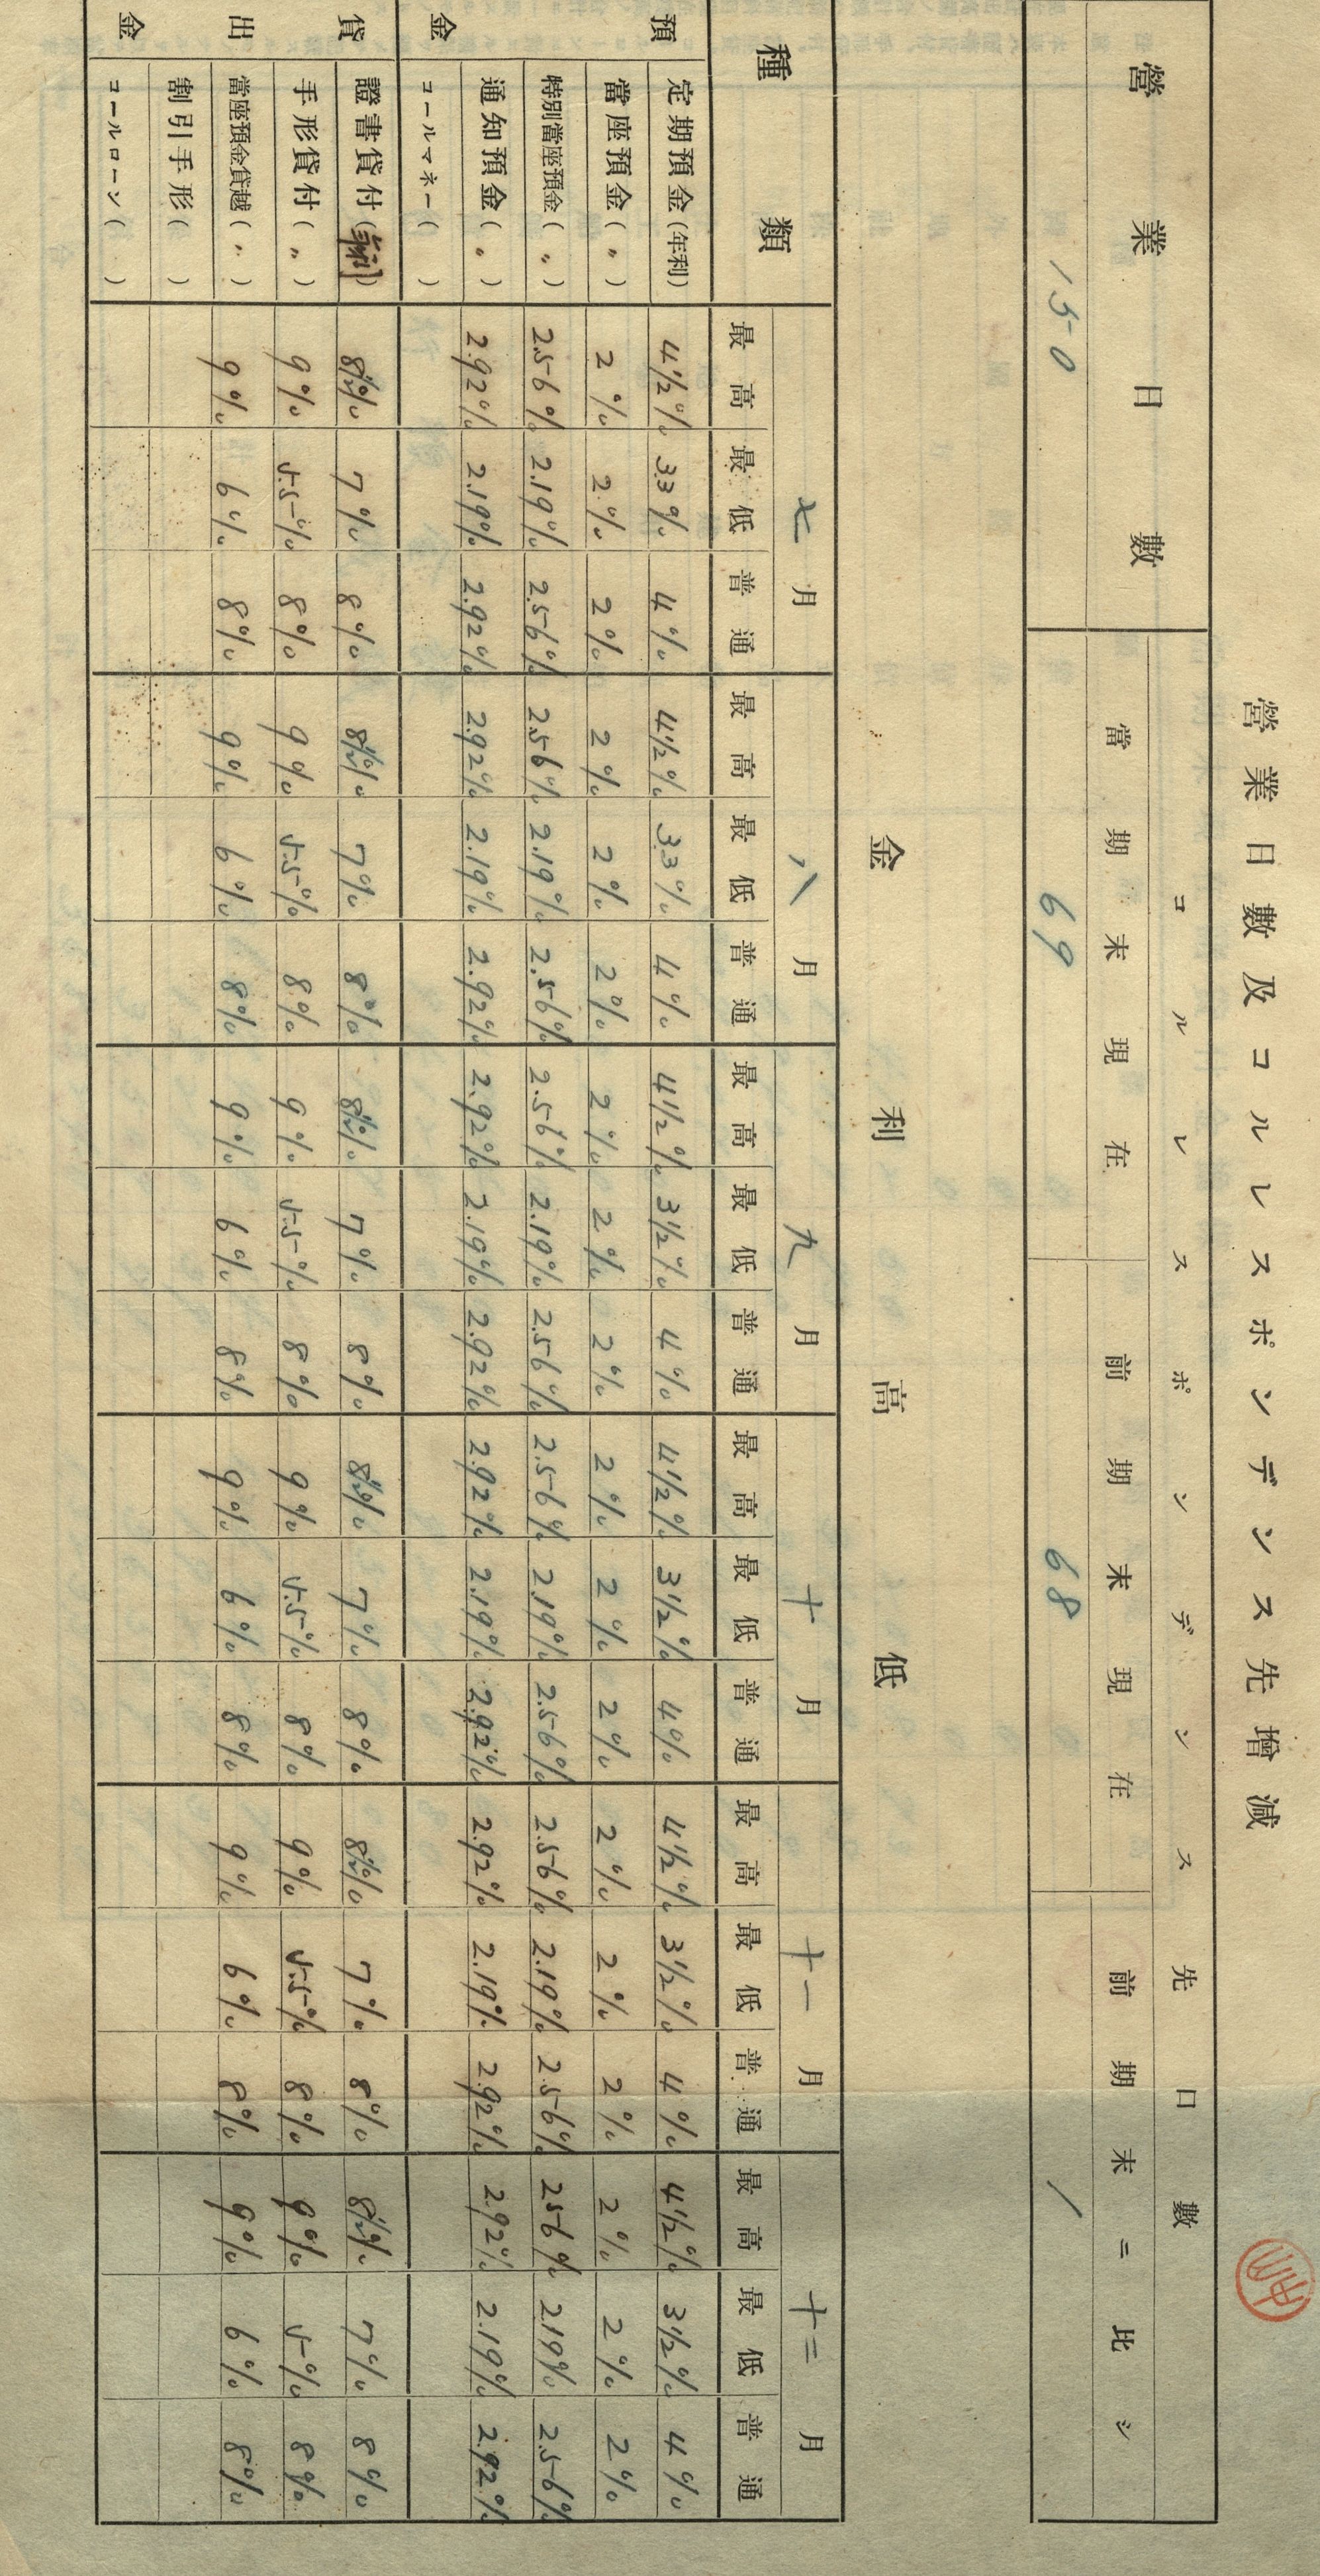 營業日數及コルレスポンデンス先增減
營業日數 コルレスポンデンス先口數
當期末現在 前期末現在 前期末ニ比シ
150 69 68 1
金利高低
種類 七月 八月 九月 十月 十一月 十二月
最高 最低 普通 最高 最低 普通 最高 最低 普通 最高 最低 普通 最高 最低 普通 最高 最低 普通
預金
定期預金(年利) 4½% 3.3% 4% 4½% 3.3% 4% 4½% 3½% 4% 4½% 3½% 4% 4½% 3½% 4% 4½% 3½% 4%
當座預金(〃) 2% 2% 2% 2% 2% 2% 2% 2% 2% 2% 2% 2% 2% 2% 2% 2% 2% 2%
特別當座預金(〃) 2.56% 2.19% 2.56% 2.56% 2.19% 2.56% 2.56% 2.19% 2.56% 2.56% 2.19% 2.56% 2.56% 2.19% 2.56% 2.56% 2.19% 2.56%
通知預金(〃) 2.92% 2.19% 2.92% 2.92% 2.19% 2.92% 2.92% 2.19% 2.92% 2.92% 2.19% 2.92% 2.92% 2.19% 2.92% 2.92% 2.19% 2.92%
コールマネー( )
貸出金
證書貸付(年利) 8½% 7% 8% 8½% 7% 8% 8½% 7% 8% 8½% 7% 8% 8½% 7% 8% 8½% 7% 8%
手形貸付(〃) 9% 5.5% 8% 9% 5.5% 8% 9% 5.5% 8% 9% 5.5% 8% 9% 5.5% 8% 9% 5% 8%
當座預金貸越(〃) 9% 6% 8% 9% 6% 8% 9% 6% 8% 9% 6% 8% 9% 6% 8% 9% 6% 8%
割引手形( )
コールローン( )